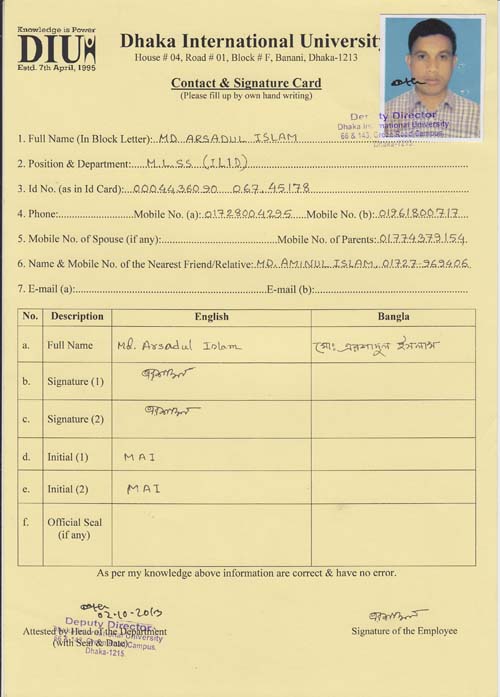 Knowledge is Power
DIU
Estd. 7th April, 1995
Dhaka International University
House # 04, Road # 01, Block # F, Banani, Dhaka-1213
Contact & Signature Card
(Please fill up by own hand writing)
Deputy Director
Dhaka International University
66 & 143, Green Road Campus,
Dhaka-1215.
1. Full Name (In Block Letter): MD. ARSADUL ISLAM
2. Position & Department: M.L.SS (ILID)
3. Id No. (as in Id Card): 0004436090 067,45178
4. Phone: Mobile No. (a): 01728004295 Mobile No. (b): 01961800717
5. Mobile No. of Spouse (if any): Mobile No. of Parents: 01774379154
6. Name & Mobile No. of the Nearest Friend/Relative: MD. AMINUL ISLAM, 01727-969406
7. E-mail (a): E-mail (b):
No. Description English Bangla
a. Full Name Md. Arsadul Islam মোঃ এরশাদুল ইসলাম
b. Signature (1)
c. Signature (2)
d. Initial (1) MAI
e. Initial (2) MAI
f. Official Seal
(if any)
As per my knowledge above information are correct & have no error.
02-10-2013
Deputy Director
Attested by Head of the Department
Dhaka International University
(with Seal & Date)
66 & 143, Green Road Campus,
Dhaka-1215.
Signature of the Employee